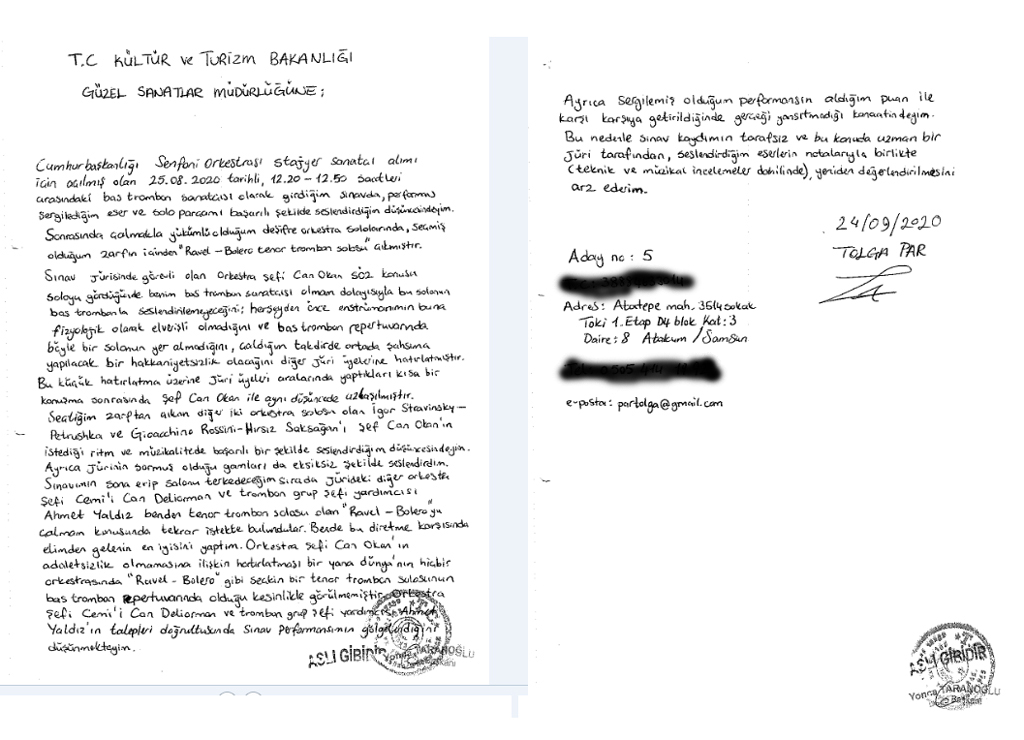 T.C KÜLTÜR ve TURİZM BAKANLIĞI
GÜZEL SANATLAR MÜDÜRLÜĞÜNE;
Cumhurbaşkanlığı Senfoni Orkestrası stajyer sanatçı alımı
için açılmış olan 25.08.2020 tarihli, 12.20 - 12.50 saatleri
arasındaki bas trombon sanatçısı olarak girdiğim sınavda, performans
sergilediğim eser ve solo parçamı başarılı şekilde seslendirdiğim düşüncesindeyim.
Sonrasında çalmakla yükümlü olduğum deşifre orkestra sololarında, seçmiş
olduğum zarfın içinden "Ravel - Bolero tenor trombon solosu" çıkmıştır.
Sınav jürisinde görevli olan Orkestra şefi Can Okan söz konusu
soloyu gördüğünde benim bas trombon sanatçısı olmam dolayısıyla bu solonun
bas trombonla seslendirilemeyeceğini; herşeyden önce enstrümanımın buna
fizyolojik olarak elverişli olmadığını ve bas trombon repertuvarında
böyle bir solonun yer almadığını, çaldığım takdirde ortada şahsıma
yapılacak bir hakkaniyetsizlik olacağını diğer jüri üyelerine hatırlatmıştır.
Bu küçük hatırlatma üzerine jüri üyeleri aralarında yaptıkları kısa bir
konuşma sonrasında Şef Can Okan ile aynı düşüncede uzlaşılmıştır.
Seçtiğim zarftan çıkan diğer iki orkestra solosu olan Igor Stravinsky -
Petrushka ve Gioacchino Rossini - Hırsız Saksağan'ı Şef Can Okan'ın
istediği ritm ve müzikalitede başarılı bir şekilde seslendirdiğim düşüncesindeyim.
Ayrıca Jürinin sormuş olduğu gamları da eksiksiz şekilde seslendirdim.
Sınavımın sona erip salonu terkedeceğim sırada jürideki diğer orkestra
şefi Cemi'i Can Deliorman ve trombon grup şefi yardımcısı
Ahmet Yaldız benden tenor trombon solosu olan "Ravel - Bolero"yu
çalmam konusunda tekrar istekte bulundular. Bende bu diretme karşısında
elimden gelenin en iyisini yaptım. Orkestra şefi Can Okan'ın
adaletsizlik olmamasına ilişkin hatırlatması bir yana dünya'nın hiçbir
orkestrasında "Ravel - Bolero" gibi seçkin bir tenor trombon solosunun
bas trombon repertuvarında olduğu kesinlikle görülmemiştir. Orkestra
şefi Cemi'i Can Deliorman ve trombon grup şefi yardımcısı Ahmet
Yaldız'ın talepleri doğrultusunda sınav performansımın gölgelendiğini
düşünmekteyim.
ASLI GİBİDİR
Yonca TARANOĞLU
Ayrıca sergilemiş olduğum performansın aldığım puan ile
karşı karşıya getirildiğinde gerçeği yansıtmadığı kanaatindeyim.
Bu nedenle sınav kaydımın tarafsız ve bu konuda uzman bir
jüri tarafından, seslendirdiğim eserlerin notalarıyla birlikte
(teknik ve müzikal incelemeler dahilinde), yeniden değerlendirilmesini
arz ederim.
24/09/2020
TOLGA PAR
Aday no : 5
Adres: Atatepe mah. 3514 sokak
Toki 1. Etap D4 blok Kat: 3
Daire: 8 Atakum / Samsun
e-posta: partolga@gmail.com
ASLI GİBİDİR
Yonca TARANOĞLU